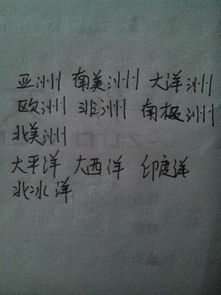 亚洲 南美洲 大洋洲
欧洲 非洲 南极洲
北美洲
太平洋 大西洋 印度洋
北冰洋